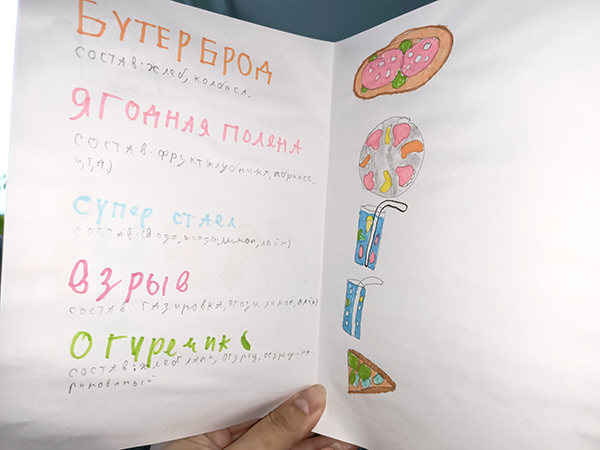 БУТЕРБРОД
СОСТАВ: хлеб, колбаса.
ЯГОДНАЯ ПОЛЕНА
СОСТАВ: ФРУКТ(клубника, абрикос,
и,т,д.)
Супер стаел
СОСТАВ: (вода, ягоды, лимон, лайм)
ВЗРЫВ
СОСТАВ: ГАЗИРОВКА, ягоды лимон, лайм)
Огуремик
СОСТАВ: хлеб огурец, огурец ма-
ринованый